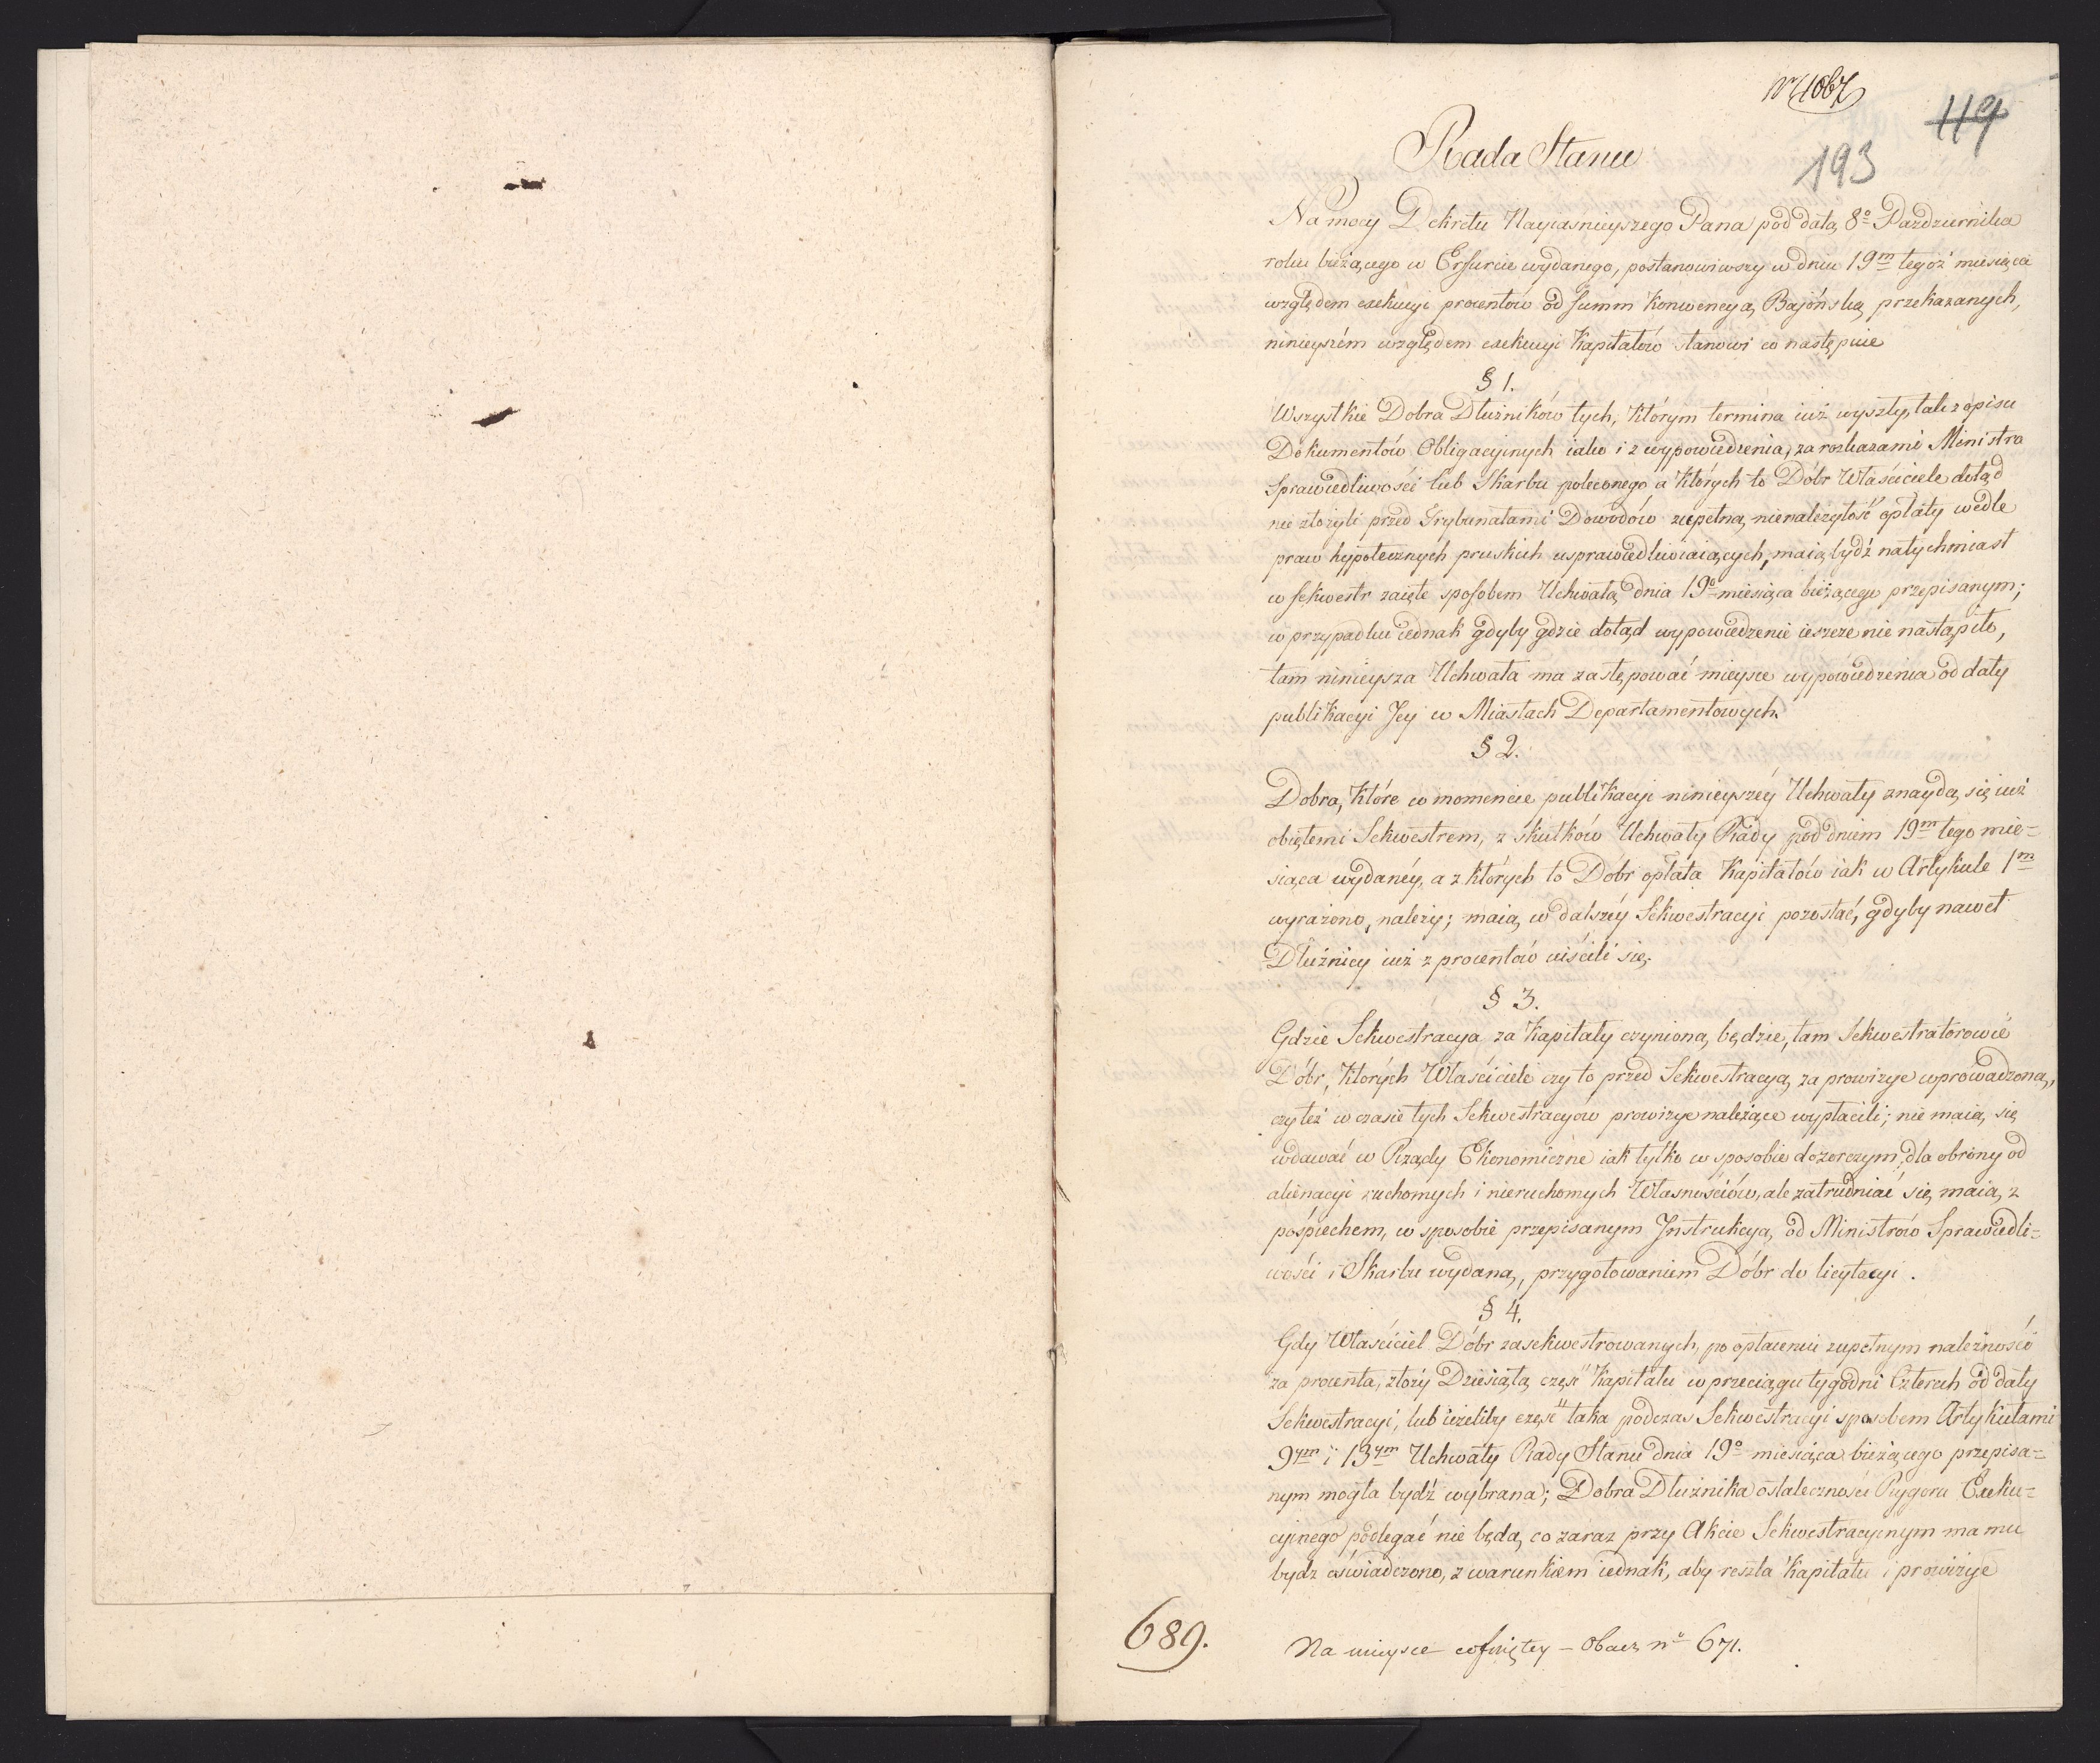 Nr 1067
119
193
Rada Stanu
Na mocy Dekretu Nayiasnieyszego Pana pod datą 8º Pazdziernika
roku bieżącego w Erfurcie wydanego, postanowiwszy w dniu 19m tegoż miesiąca
względem exekucyi procentów od summ Konwencyą Bajońską przekazanych,
ninieyszém względem exekucyi Kapitałów stanowi co następuie
§ 1.
Wszystkie Dobra Dłużników tych, którym termina iuż wyszły, tak z opisu
Dokumentów Obligacyinych iako i z wypowiedzenia, za rozkazami Ministra
Sprawiedliwości lub Skarbu poleconego a których to Dóbr Właściciele dotąd
nie złożyli przed Trybunałami Dowodów zupełną nienależytość opłaty wedle
praw hypotecznych pruskich usprawiedliwiaiących, maią bydź natychmiast
w sekwestr zaięte sposobem Uchwałą dnia 19º miesiąca bieżącego przepisanym;
w przypadku iednak gdyby gdzie dotąd wypowiedzenie ieszcze nie nastąpiło,
tam ninieysza Uchwała ma zastępować mieysce wypowiedzenia od daty
publikacyi Jey w Miastach Departamentowych.
§ 2.
Dobra, które w momencie publikacyi ninieyszéy Uchwały znaydą się iuż
obiętemi Sekwestrem, z skutków Uchwały Rady pod dniem 19m tego mie=
siąca wydanéy, a z których to Dóbr opłata Kapitałów iak w Artykule 1m
wyrażono, należy; maią w dalszéy Sekwestracyi pozostać, gdyby nawet
Dłużnicy iuż z procentów uiścili się.
§ 3.
Gdzie Sekwestracya za Kapitały czynioną będzie, tam Sekwestratorowie
Dóbr, których Właściciele czy to przed Sekwestracyą za prowizye wprowadzoną,
czy też w czasie tych Sekwestracyow prowizye należące wypłacili; nie maią się
wdawać w Rządy Ekonomiczne iak tylko w sposobie dozorczym, dla obrony od
alienacyi ruchomych i nieruchomych Własnościów, ale zatrudniać się maią z
pośpiechem, w sposobie przepisanym Jnstrukcyą od Ministrów Sprawiedli=
wości i Skarbu wydaną, przygotowaniem Dóbr do licytacyi.
§ 4.
Gdy Właściciel Dóbr zasekwestrowanych, po opłaceniu zupełnym należności
za procenta, złoży Dziesiątą część Kapitału w przeciągu tygodni Czterech od daty
Sekwestracyi, lub ieżeliby część taka podczas Sekwestracyi sposobem Artykułami
9ym i 13ym Uchwały Rady Stanu dnia 19º miesiąca bieżącego przepisa=
nym mogła bydź wybrana; Dobra Dłużnika ostateczności Rygoru Exeku=
cyinego podlegać nie będą, co zaraz przy Akcie Sekwestracyinym ma mu
bydz oświadczono, z warunkiem iednak, aby reszta Kapitału i prowizye
689.
Na mieysce cofniętey – Obacz nº 671.